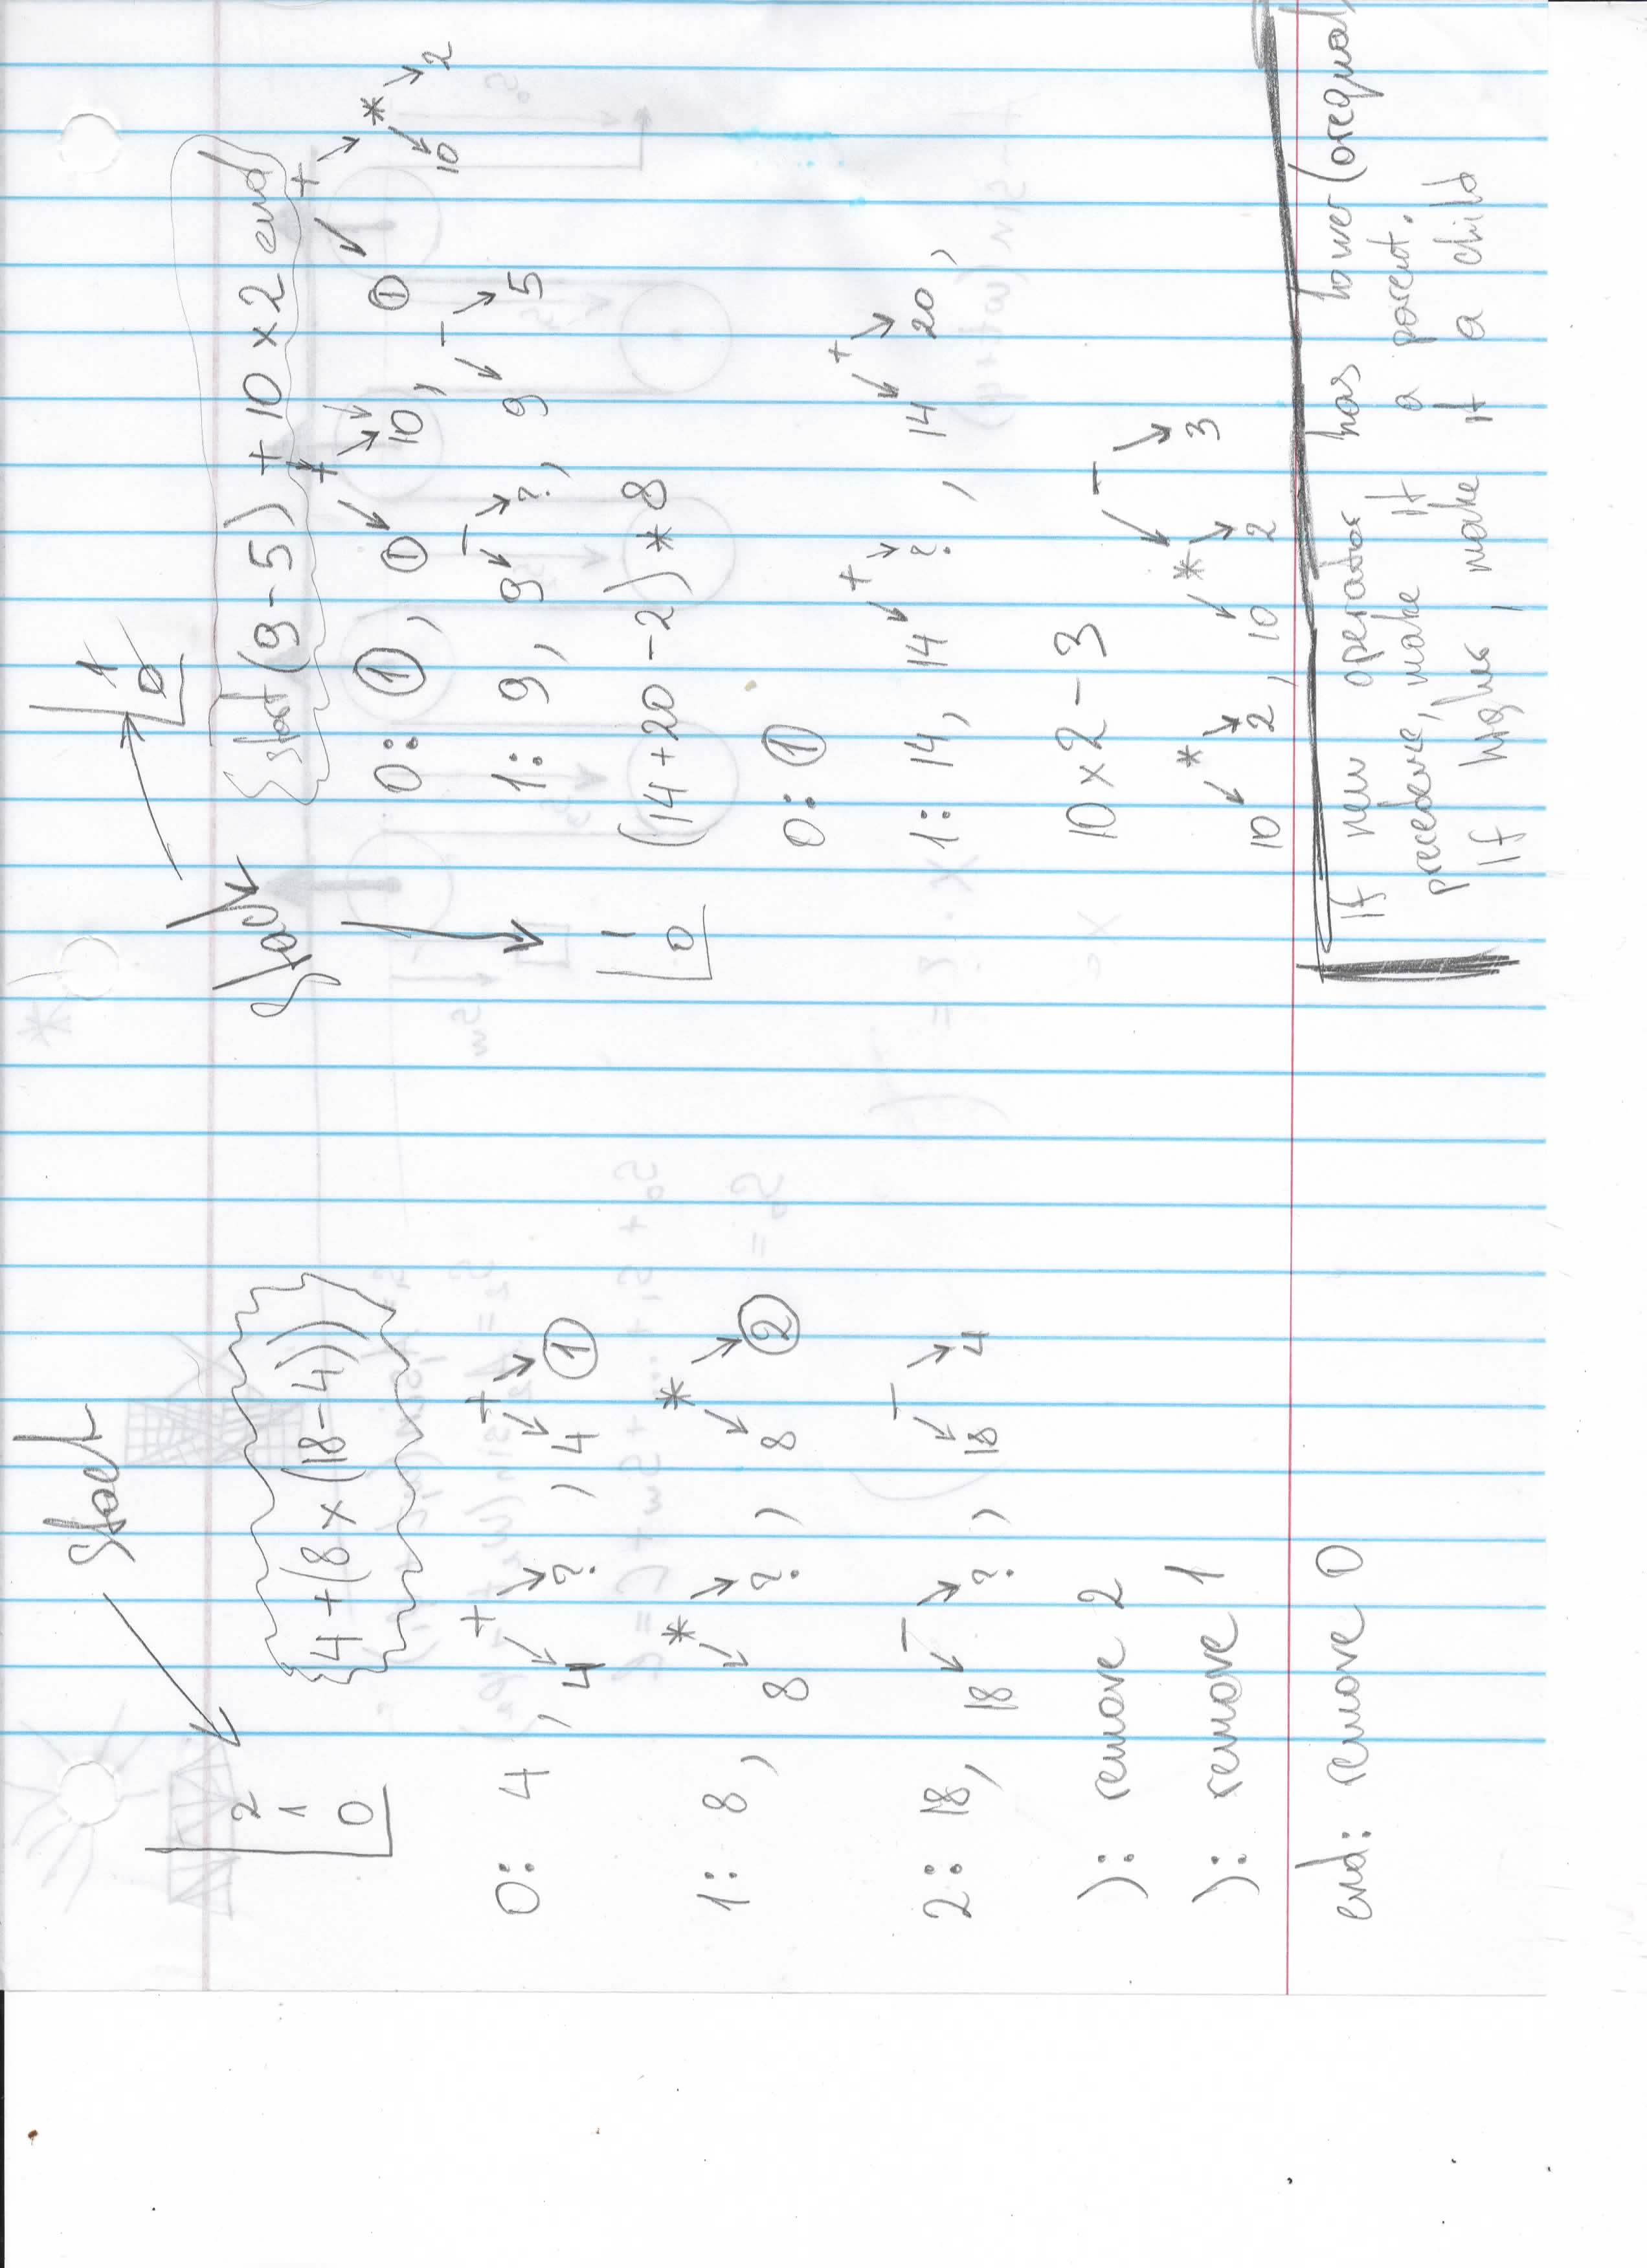 Stack
2
1
0
4 + (8 × (18 - 4))
0: 4, + 4 ?, + 4 ①
1: 8, * 8 ?, * 8 ②
2: 18, - 18 ?, - 18 4
): remove 2
): remove 1
end: remove 0
1
0
Stack
start (9 - 5) + 10 × 2 end
0: ①, + ① 10, + ① * 10 2
1: 9, - 9 ?, - 9 5
1
0
(14 + 20 - 2) * 8
0: ①
1: 14, + 14 ?, + 14 20,
10 × 2 - 3
* 10 2, - * 10 2 3
If new operator has lower (or equal)
precedence, make it a parent.
If higher, make it a child